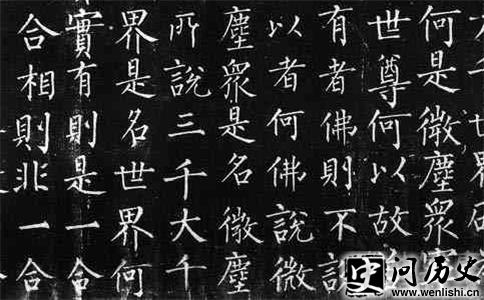 千世界
何是微塵眾
世尊何以故
有者佛則不說
以者何佛說微
塵眾是名微塵
所說三千大千
界是名世界何
實有則是一合
合相則非一合
史问历史
www.wenlishi.cn